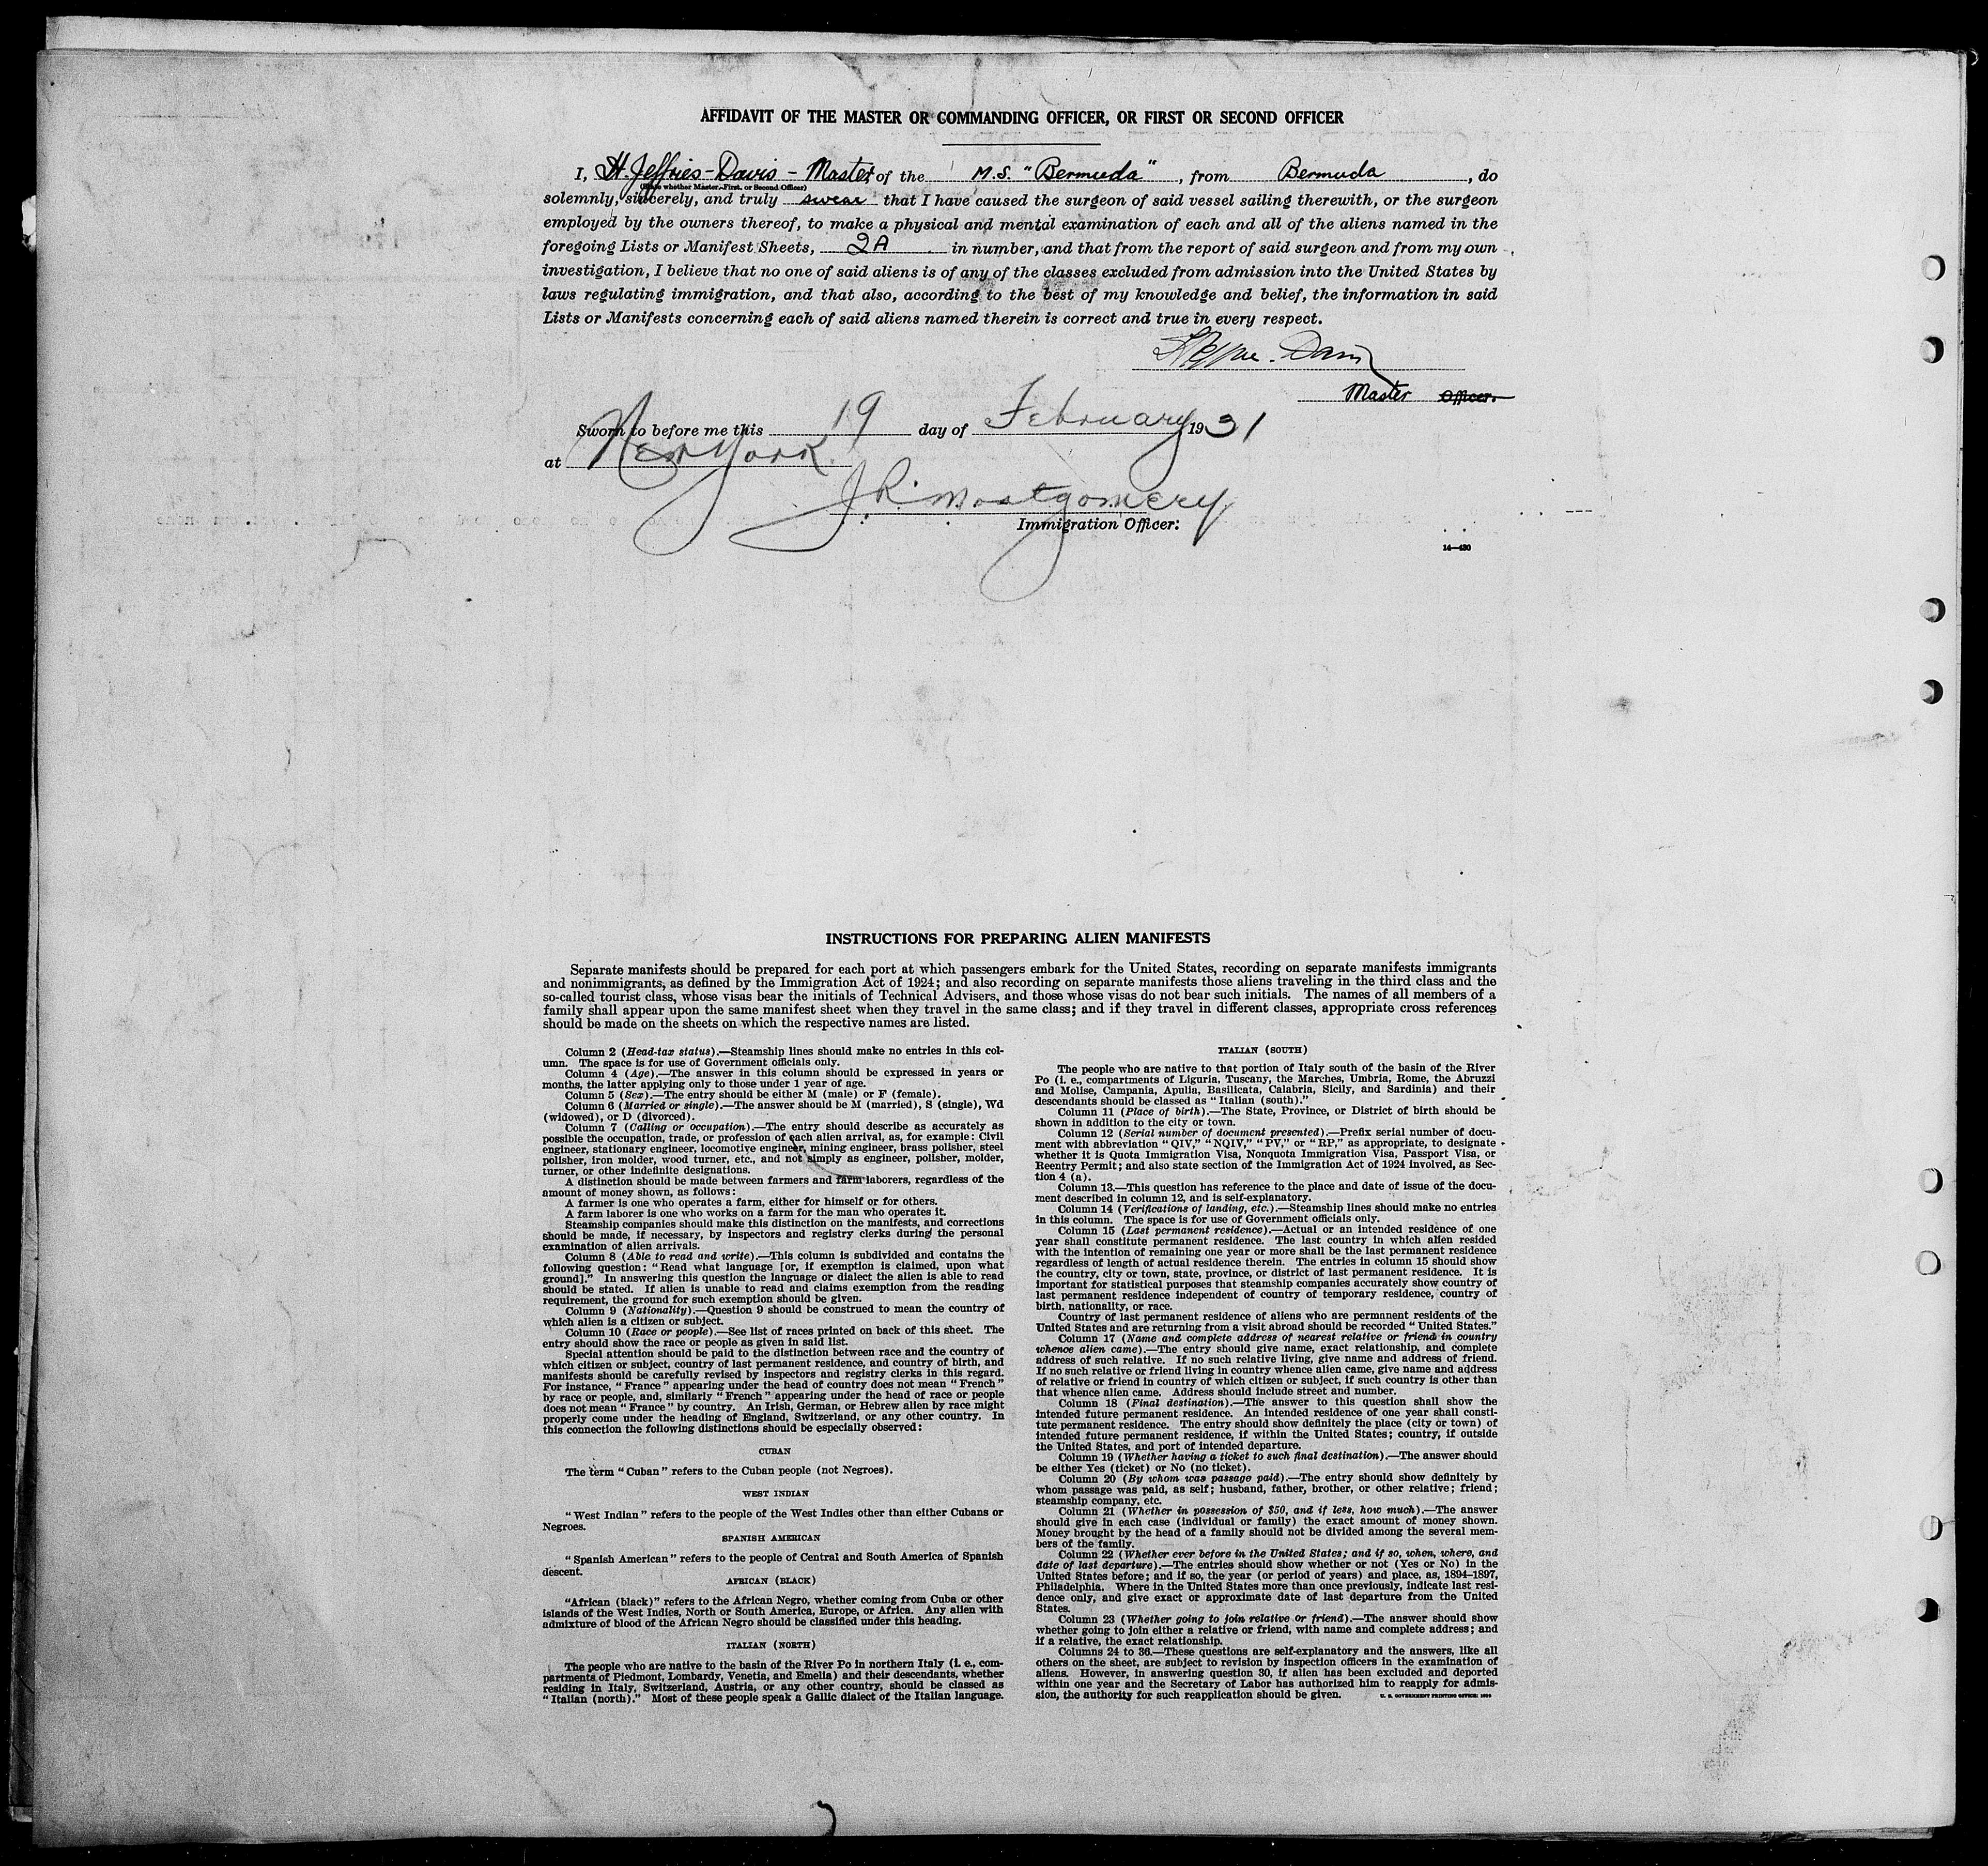 AFFIDAVIT OF THE MASTER OR COMMANDING OFFICER, OR FIRST OR SECOND OFFICER
I, H. Jeffries-Davis - Master, of the M.S. "Bermuda", from Bermuda, do
(State whether Master, First, or Second Officer)
solemnly, sincerely, and truly swear that I have caused the surgeon of said vessel sailing therewith, or the surgeon
employed by the owners thereof, to make a physical and mental examination of each and all of the aliens named in the
foregoing Lists or Manifest Sheets, 2A in number, and that from the report of said surgeon and from my own
investigation, I believe that no one of said aliens is of any of the classes excluded from admission into the United States by
laws regulating immigration, and that also, according to the best of my knowledge and belief, the information in said
Lists or Manifests concerning each of said aliens named therein is correct and true in every respect.
Davis
Master Officer.
Sworn to before me this 19 day of February 1931
at New York
J. R. Montgomery
Immigration Officer.
14—430
INSTRUCTIONS FOR PREPARING ALIEN MANIFESTS
Separate manifests should be prepared for each port at which passengers embark for the United States, recording on separate manifests immigrants
and nonimmigrants, as defined by the Immigration Act of 1924; and also recording on separate manifests those aliens traveling in the third class and the
so-called tourist class, whose visas bear the initials of Technical Advisers, and those whose visas do not bear such initials. The names of all members of a
family shall appear upon the same manifest sheet when they travel in the same class; and if they travel in different classes, appropriate cross references
should be made on the sheets on which the respective names are listed.
Column 2 (Head-tax status).—Steamship lines should make no entries in this col-
umn. The space is for use of Government officials only.
Column 4 (Age).—The answer in this column should be expressed in years or
months, the latter applying only to those under 1 year of age.
Column 5 (Sex).—The entry should be either M (male) or F (female).
Column 6 (Married or single).—The answer should be M (married), S (single), Wd
(widowed), or D (divorced).
Column 7 (Calling or occupation).—The entry should describe as accurately as
possible the occupation, trade, or profession of each alien arrival, as, for example: Civil
engineer, stationary engineer, locomotive engineer, mining engineer, brass polisher, steel
polisher, iron molder, wood turner, etc., and not simply as engineer, polisher, molder,
turner, or other indefinite designations.
A distinction should be made between farmers and farm laborers, regardless of the
amount of money shown, as follows:
A farmer is one who operates a farm, either for himself or for others.
A farm laborer is one who works on a farm for the man who operates it.
Steamship companies should make this distinction on the manifests, and corrections
should be made, if necessary, by inspectors and registry clerks during the personal
examination of alien arrivals.
Column 8 (Able to read and write).—This column is subdivided and contains the
following question: "Read what language [or, if exemption is claimed, upon what
ground]." In answering this question the language or dialect the alien is able to read
should be stated. If alien is unable to read and claims exemption from the reading
requirement, the ground for such exemption should be given.
Column 9 (Nationality).—Question 9 should be construed to mean the country of
which alien is a citizen or subject.
Column 10 (Race or people).—See list of races printed on back of this sheet. The
entry should show the race or people as given in said list.
Special attention should be paid to the distinction between race and the country of
which citizen or subject, country of last permanent residence, and country of birth, and
manifests should be carefully revised by inspectors and registry clerks in this regard.
For instance, "France" appearing under the head of country does not mean "French"
by race or people, and, similarly "French" appearing under the head of race or people
does not mean "France" by country. An Irish, German, or Hebrew alien by race might
properly come under the heading of England, Switzerland, or any other country. In
this connection the following distinctions should be especially observed:
CUBAN
The term "Cuban" refers to the Cuban people (not Negroes).
WEST INDIAN
"West Indian" refers to the people of the West Indies other than either Cubans or
Negroes.
SPANISH AMERICAN
"Spanish American" refers to the people of Central and South America of Spanish
descent.
AFRICAN (BLACK)
"African (black)" refers to the African Negro, whether coming from Cuba or other
islands of the West Indies, North or South America, Europe, or Africa. Any alien with
admixture of blood of the African Negro should be classified under this heading.
ITALIAN (NORTH)
The people who are native to the basin of the River Po in northern Italy (i. e., com-
partments of Piedmont, Lombardy, Venetia, and Emelia) and their descendants, whether
residing in Italy, Switzerland, Austria, or any other country, should be classed as
"Italian (north)." Most of these people speak a Gallic dialect of the Italian language.
ITALIAN (SOUTH)
The people who are native to that portion of Italy south of the basin of the River
Po (i. e., compartments of Liguria, Tuscany, the Marches, Umbria, Rome, the Abruzzi
and Molise, Campania, Apulia, Basilicata, Calabria, Sicily, and Sardinia) and their
descendants should be classed as "Italian (south)."
Column 11 (Place of birth).—The State, Province, or District of birth should be
shown in addition to the city or town.
Column 12 (Serial number of document presented).—Prefix serial number of docu-
ment with abbreviation "QIV," "NQIV," "PV," or "RP," as appropriate, to designate
whether it is Quota Immigration Visa, Nonquota Immigration Visa, Passport Visa, or
Reentry Permit; and also state section of the Immigration Act of 1924 involved, as Sec-
tion 4 (a).
Column 13.—This question has reference to the place and date of issue of the docu-
ment described in column 12, and is self-explanatory.
Column 14 (Verifications of landing, etc.).—Steamship lines should make no entries
in this column. The space is for use of Government officials only.
Column 15 (Last permanent residence).—Actual or an intended residence of one
year shall constitute permanent residence. The last country in which alien resided
with the intention of remaining one year or more shall be the last permanent residence
regardless of length of actual residence therein. The entries in column 15 should show
the country, city or town, state, province, or district of last permanent residence. It is
important for statistical purposes that steamship companies accurately show country of
last permanent residence independent of country of temporary residence, country of
birth, nationality, or race.
Country of last permanent residence of aliens who are permanent residents of the
United States and are returning from a visit abroad should be recorded "United States."
Column 17 (Name and complete address of nearest relative or friend in country
whence alien came).—The entry should give name, exact relationship, and complete
address of such relative. If no such relative living, give name and address of friend.
If no such relative or friend living in country whence alien came, give name and address
of relative or friend in country of which citizen or subject, if such country is other than
that whence alien came. Address should include street and number.
Column 18 (Final destination).—The answer to this question shall show the
intended future permanent residence. An intended residence of one year shall consti-
tute permanent residence. The entry should show definitely the place (city or town) of
intended future permanent residence, if within the United States; country, if outside
the United States, and port of intended departure.
Column 19 (Whether having a ticket to such final destination).—The answer should
be either Yes (ticket) or No (no ticket).
Column 20 (By whom was passage paid).—The entry should show definitely by
whom passage was paid, as self; husband, father, brother, or other relative; friend;
steamship company, etc.
Column 21 (Whether in possession of $50, and if less, how much).—The answer
should give in each case (individual or family) the exact amount of money shown.
Money brought by the head of a family should not be divided among the several mem-
bers of the family.
Column 22 (Whether ever before in the United States; and if so, when, where, and
date of last departure).—The entries should show whether or not (Yes or No) in the
United States before; and if so, the year (or period of years) and place, as, 1894–1897,
Philadelphia. Where in the United States more than once previously, indicate last resi-
dence only, and give exact or approximate date of last departure from the United
States.
Column 23 (Whether going to join relative or friend).—The answer should show
whether going to join either a relative or friend, with name and complete address; and
if a relative, the exact relationship.
Columns 24 to 36.—These questions are self-explanatory and the answers, like all
others on the sheet, are subject to revision by inspection officers in the examination of
aliens. However, in answering question 30, if alien has been excluded and deported
within one year and the Secretary of Labor has authorized him to reapply for admis-
sion, the authority for such reapplication should be given. U. S. GOVERNMENT PRINTING OFFICE: